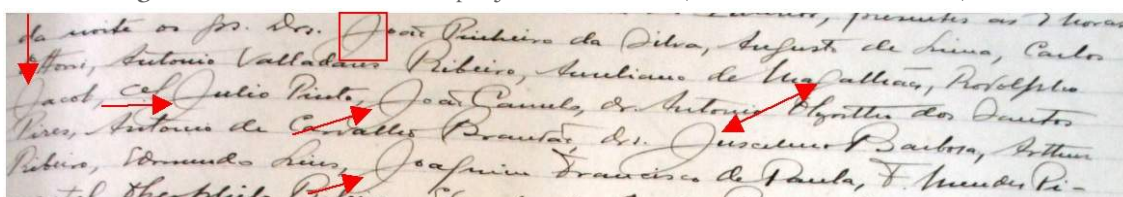 da noite os Srs. Drs. João Pinheiro da Silva, Augusto de Lima, Carlos
Ottoni, Antonio Valladares Ribeiro, Aureliano de Magalhães, Rodolpho
Jacob, cel Julio Pinto, João Camelo, dr. Antonio Olyntho dos Santos
Pires, Antonio de Carvalho Brandão, drs. Juscelino Barbosa, Arthur
Ribeiro, Edmundo Lins, Joaquim Francisco de Paula, F. Mendes Pi-